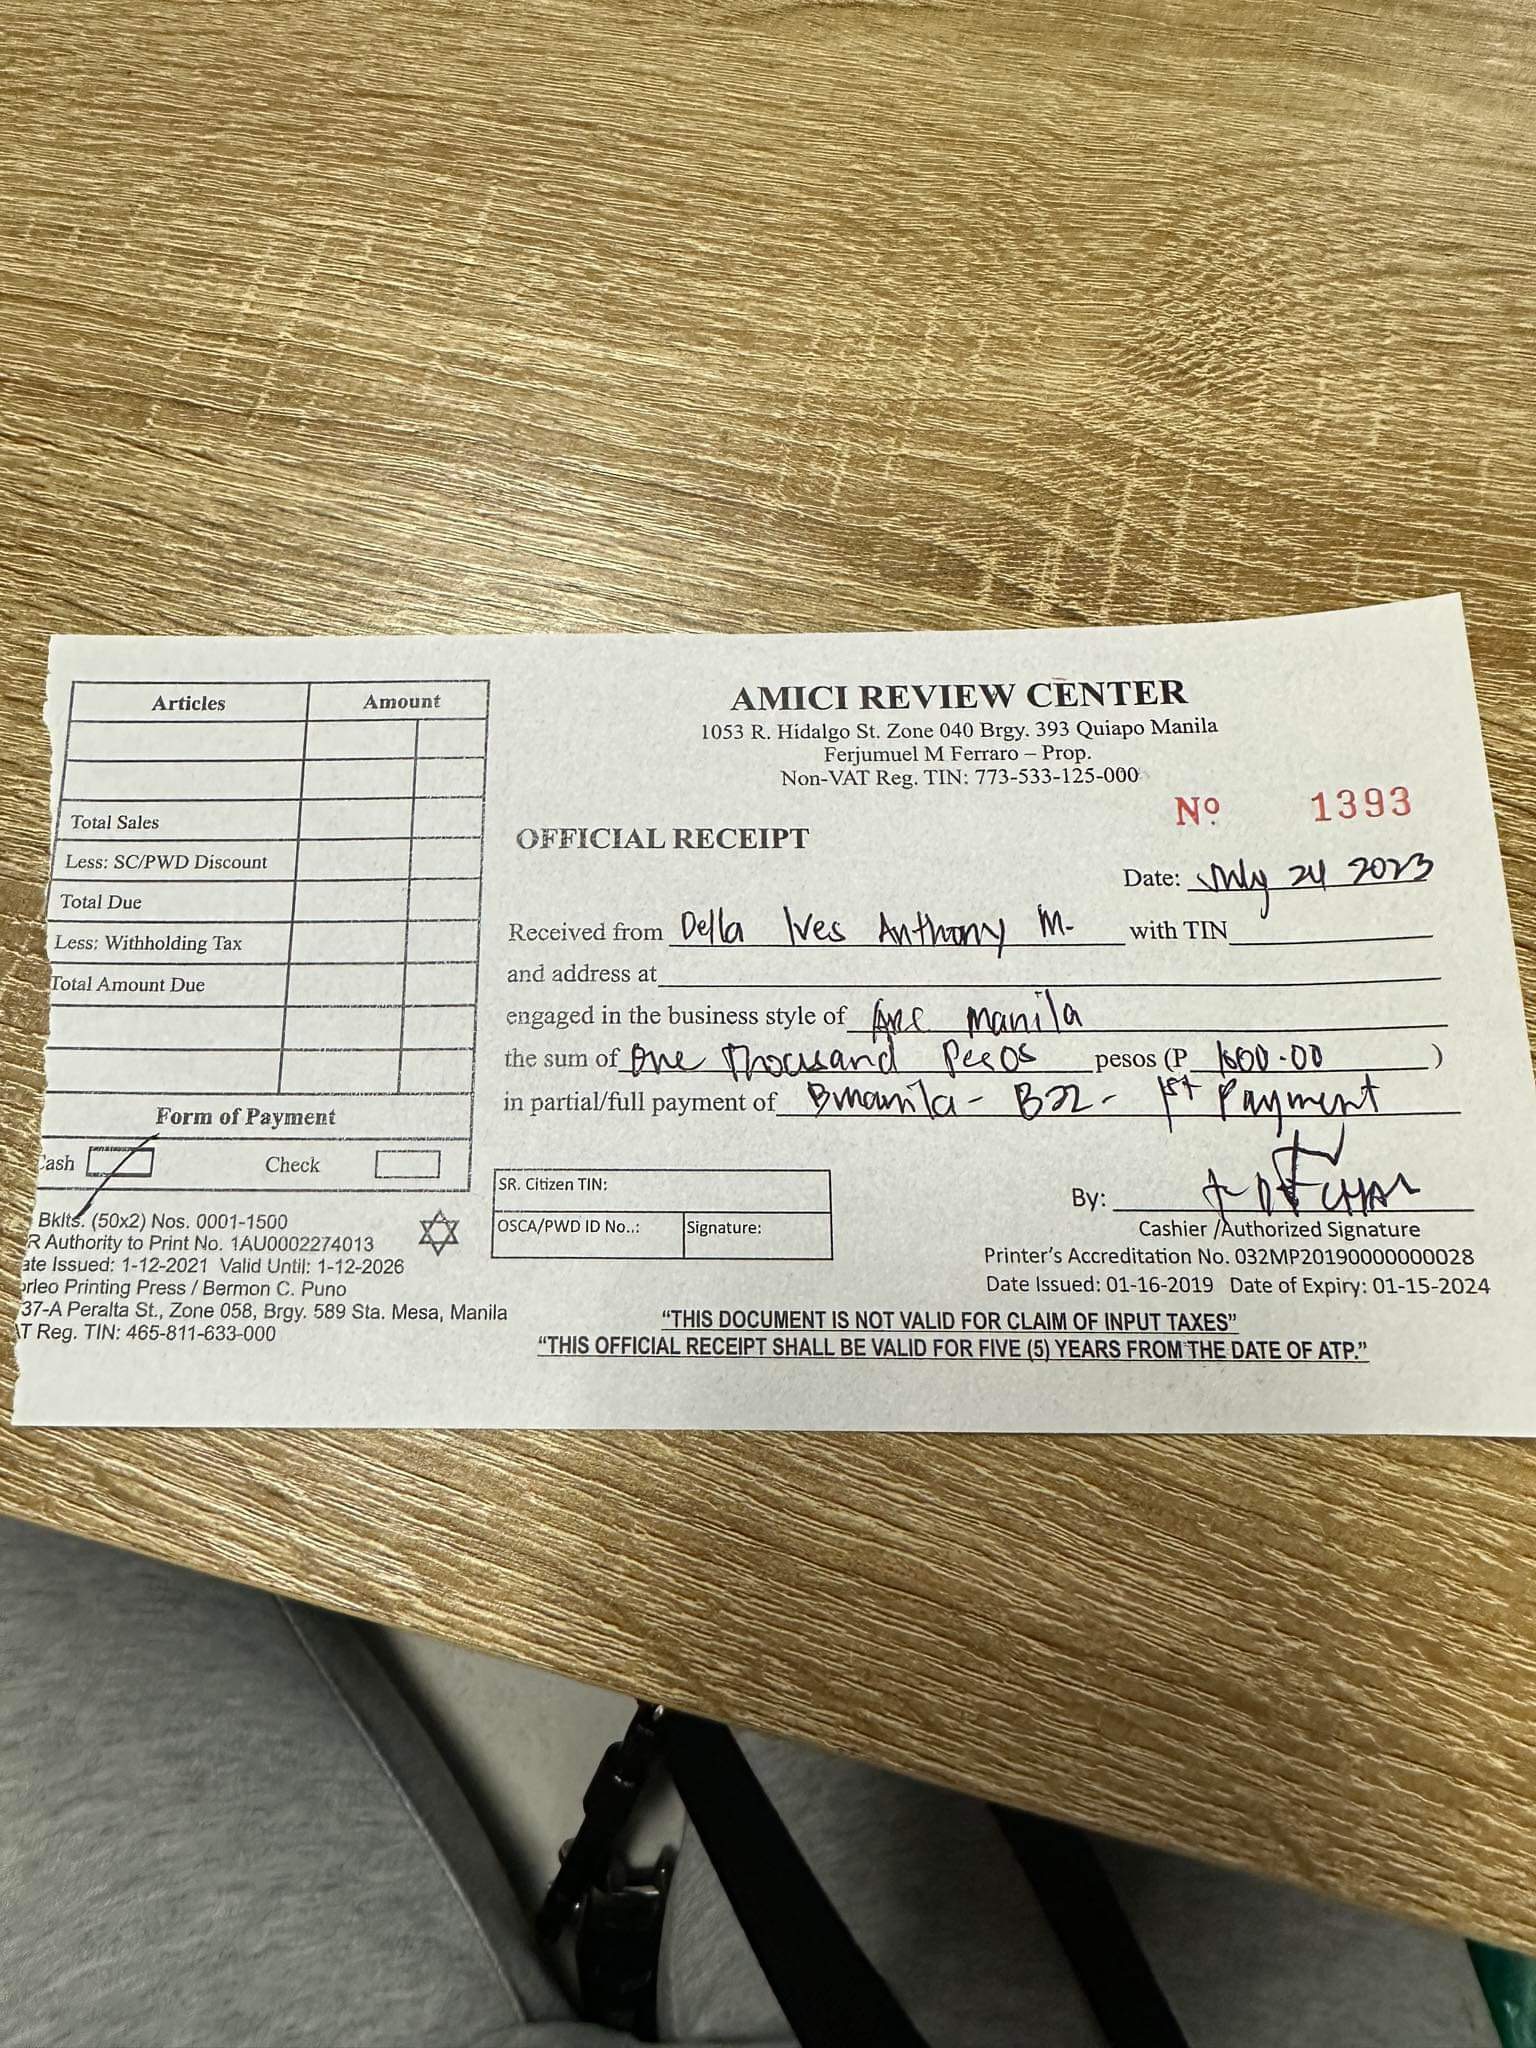 Articles Amount
Total Sales
Less: SC/PWD Discount
Total Due
Less: Withholding Tax
Total Amount Due
Form of Payment
Cash Check
Bklts. (50x2) Nos. 0001-1500
R Authority to Print No. 1AU0002274013
ate Issued: 1-12-2021 Valid Until: 1-12-2026
orleo Printing Press / Bermon C. Puno
37-A Peralta St., Zone 058, Brgy. 589 Sta. Mesa, Manila
AT Reg. TIN: 465-811-633-000
AMICI REVIEW CENTER
1053 R. Hidalgo St. Zone 040 Brgy. 393 Quiapo Manila
Ferjumuel M Ferraro – Prop.
Non-VAT Reg. TIN: 773-533-125-000
Nº 1393
OFFICIAL RECEIPT
Date: July 24 2023
Received from Della Ives Anthony M. with TIN
and address at
engaged in the business style of ARC Manila
the sum of One Thousand Pesos pesos (P 1000.00 )
in partial/full payment of Bmanila - B22 - 1st Payment
SR. Citizen TIN:
OSCA/PWD ID No..: Signature:
By:
Cashier /Authorized Signature
Printer's Accreditation No. 032MP20190000000028
Date Issued: 01-16-2019 Date of Expiry: 01-15-2024
“THIS DOCUMENT IS NOT VALID FOR CLAIM OF INPUT TAXES”
“THIS OFFICIAL RECEIPT SHALL BE VALID FOR FIVE (5) YEARS FROM THE DATE OF ATP.”